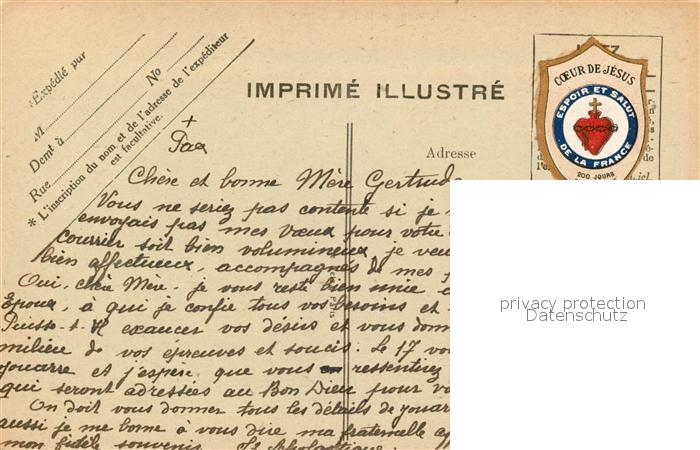 *Expédié par
M
Demt à
No
Rue
* L'inscription du nom et de l'adresse de l'expéditeur
est facultative.
IMPRIMÉ ILLUSTRÉ
Adresse
CŒUR DE JÉSUS
ESPOIR ET SALUT
DE LA FRANCE
200 JOURS
+
Pax
Chère et bonne Mère Gertrude
Vous ne seriez pas contente si je
envoyais pas mes vœux pour votre
courrier soit bien volumineux, je veux
bien affectueux, accompagnés de mes
Oui, chère Mère, je vous reste bien unie
Epoux, à qui je confie tous vos besoins et
Puisse-t-Il exaucer vos désirs et vous donn
milieu de vos épreuves et soucis. Le 17 vo
Jouarre et j'espère que vous ressentirez
qui seront adressées au Bon Dieu pour vo
On doit vous donner tous les détails de Jouar
aussi je me borne à vous dire ma fraternelle
mon fidèle souvenir. Sr Scholastique
privacy protection
Datenschutz